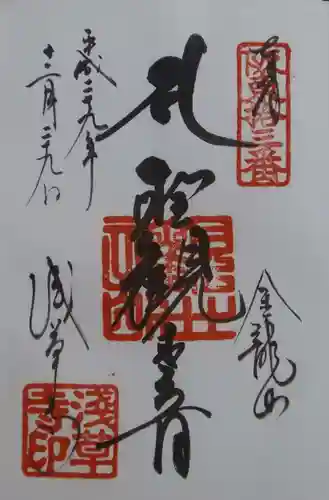 奉拝
坂東拾三番
金龍山
聖観世音
浅草寺
浅草寺印
平成二十九年
十二月二十九日